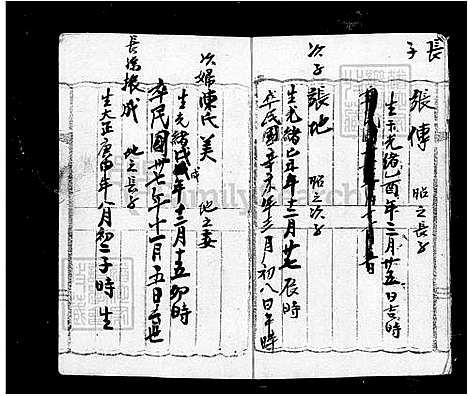 長子
張傳 昭之長子
生于光緒乙酉年三月廿五日吉時
次子
張地 昭之次子
生光緒己丑年十二月廿七辰時
卒民國辛亥年三月初八日午時
次婦陳氏美 地之妻
生光緒戊戌年十二月十五卯時
卒民國卅七年十一月五日
長孫振成 地之長子
生大正庚申年八月初二子時生